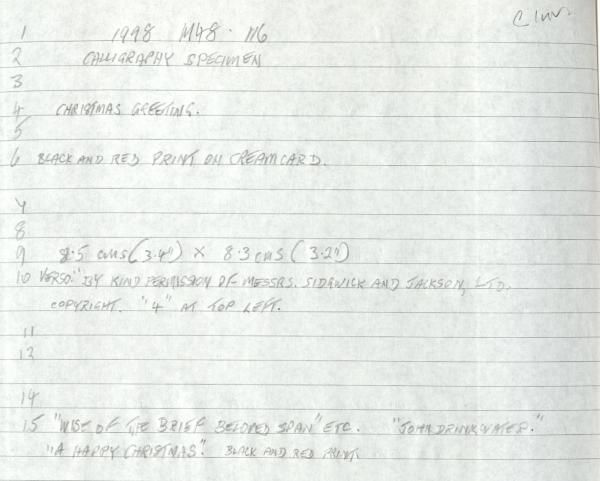 C Inv.
1 1998 M48 . M6
2 CALLIGRAPHY SPECIMEN
3
4 CHRISTMAS GREETING.
5
6 BLACK AND RED PRINT ON CREAM CARD.
7
8
9 8.5 cms (3.4") X 8.3 cms (3.2")
10 VERSO: "BY KIND PERMISSION OF MESSRS. SIDGWICK AND JACKSON, LTD.
COPYRIGHT. "4" AT TOP LEFT.
11
12
14
15 "WISE OF THE BRIEF BELOVED SPAN" ETC. "JOHN DRINKWATER."
"A HAPPY CHRISTMAS". BLACK AND RED PRINT.